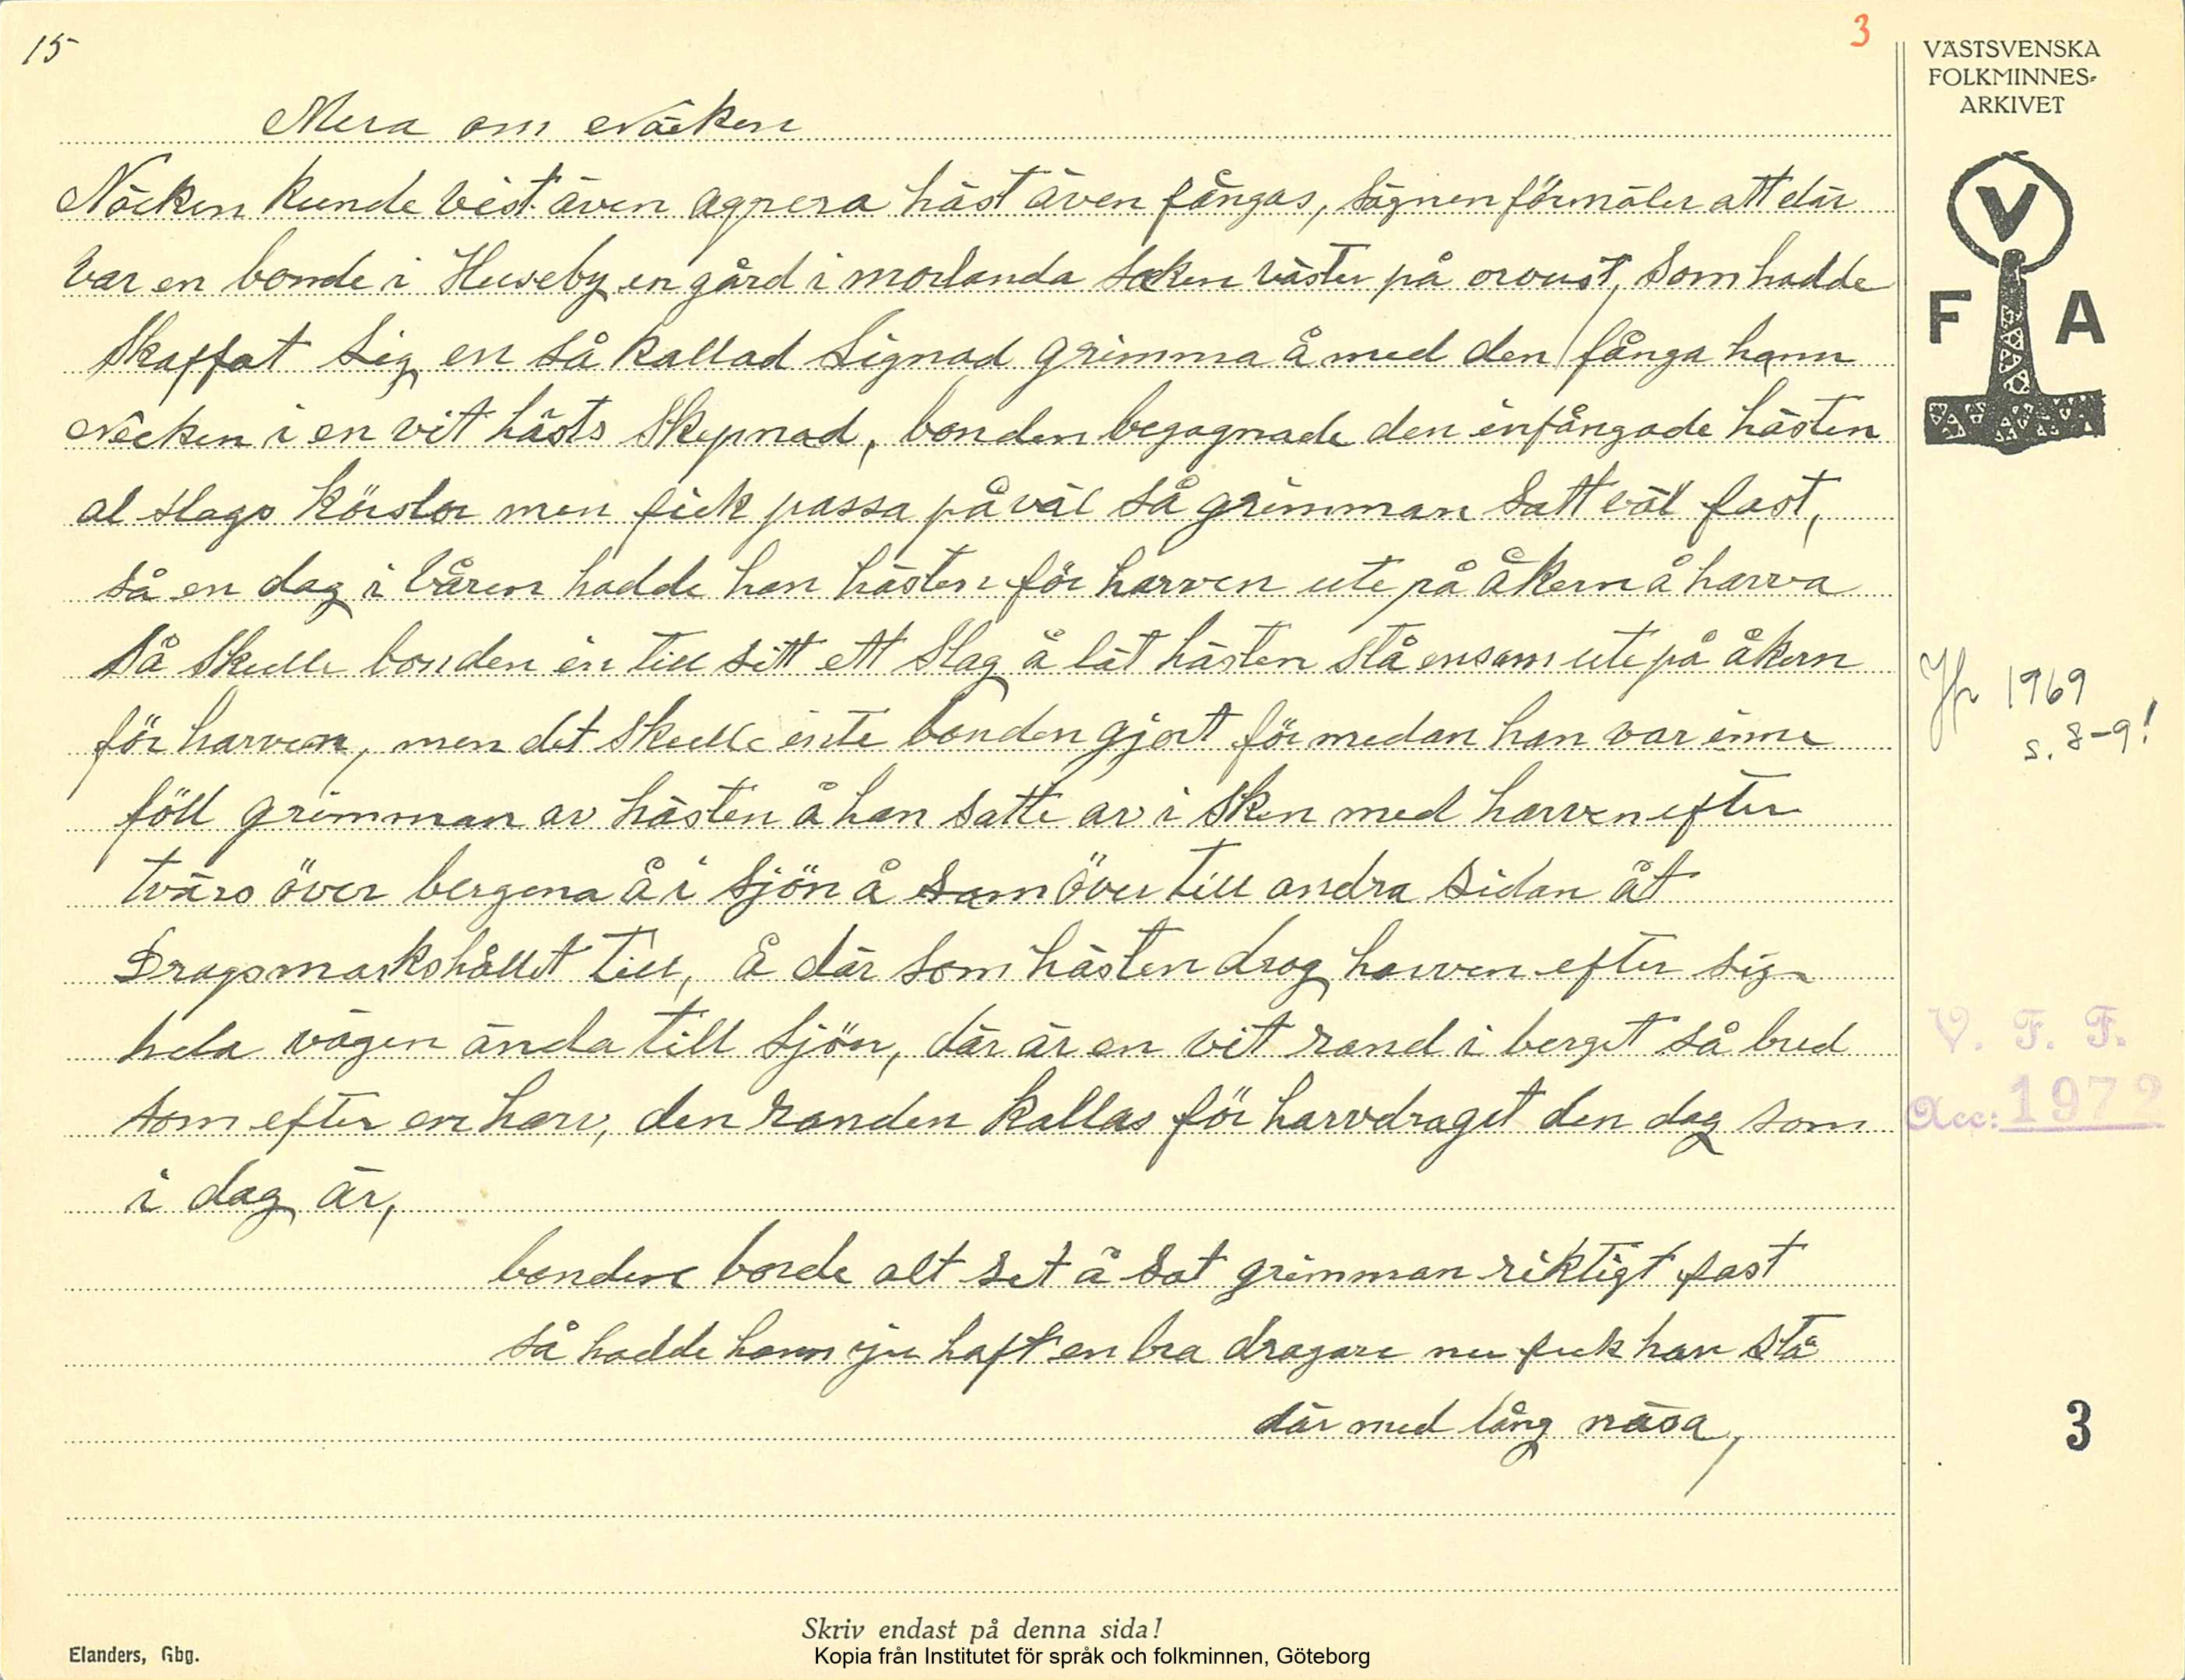 15
3
VÄSTSVENSKA
FOLKMINNES-
ARKIVET
V
F A
Mera om Näcken
Näcken kunde vist även agnera häst även fångas, sägnen förmäler att där
var en bonde i Huseby en gård i morlanda socken väster på oroust, som hadde
skaffat sig en så kallad signad grimma å med den fånga hann
Näcken i en vit hästs skepnad, bonden begagnade den infångade hästen
al slags körslor men fick passa på väl så grimman satt väl fast,
så en dag i våren hadde han hästen för harven ute på åkern å harva
så skulle bonden in till sitt ett slag å lät hästen stå ensam ute på åkern
för harven, men det skulle inte bonden gjort för medan han var inne
föll grimman av hästen å han satte av i sken med harven efter
tvärs över bergena å i sjön å sam över till andra sidan åt
Dragsmarkshållet till, å där som hästen drog harven efter sig
hela vägen ända till sjön, där är en vit rand i berget så bred
som efter en harv, den randen kallas för harvdraget den dag som
i dag är,
bonden borde alt set å sat grimman riktigt fast
så hadde hann ju haft en bra dragare nu fick han stå
där med lång näsa,
Jfr 1969
s. 8-9!
V. F. F.
Acc: 1972
3
Skriv endast på denna sida!
Elanders, Gbg.
Kopia från Institutet för språk och folkminnen, Göteborg